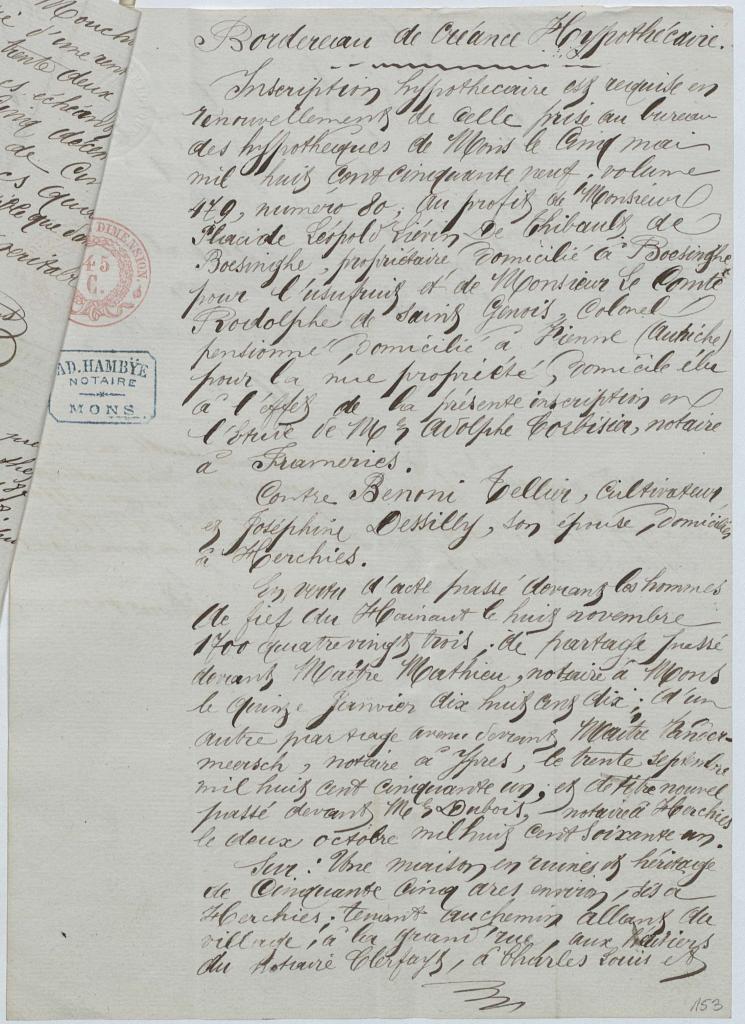 Bordereau de Créance Hypothécaire.
Inscription hypothécaire est requise en
renouvellement de celle prise au bureau
des hypothèques de Mons le Cinq mai
mil huit cent cinquante neuf, volume
479, numéro 80, au profit de Monsieur
Placide Léopold Liévin De Thibault de
Boesinghe, propriétaire domicilié à Boesinghe
pour l'usufruit et de Monsieur Le Comte
Rodolphe de Saint Genois, Colonel
pensionné, domicilié à Vienne (Autriche)
pour la nue propriété, domicile élu
à l'effet de la présente inscription en
l'Etude de Me Adolphe Corbisier, notaire
à Frameries.
Contre Benoni Tellier, cultivateur
et Joséphine Dessilly, son épouse, domiciliés
à Herchies.
En vertu d'acte passé devant les hommes
de fief du Hainaut le huit novembre
1700 quatrevingt trois; de partage passé
devant Maître Mathieu, notaire à Mons
le quinze Janvier dix huit cent dix; d'un
autre partage avenu devant Maître Vander-
meersch, notaire à Ypres, le trente septembre
mil huit cent cinquante un; et de titre nouvel
passé devant Me Dubois, notaire à Herchies
le deux octobre mil huit cent soixante un.
Sur: Une maison en ruines et héritage
de Cinquante Cinq ares environ, sis à
Herchies, tenant au chemin allant du
village, à la grand'rue, aux héritiers
du notaire Clerfayt, à Charles Louis et
153
DIMENSION
45
C.
AD. HAMBYE
NOTAIRE
MONS
Mouch
d'une
trente deux
échéan
de